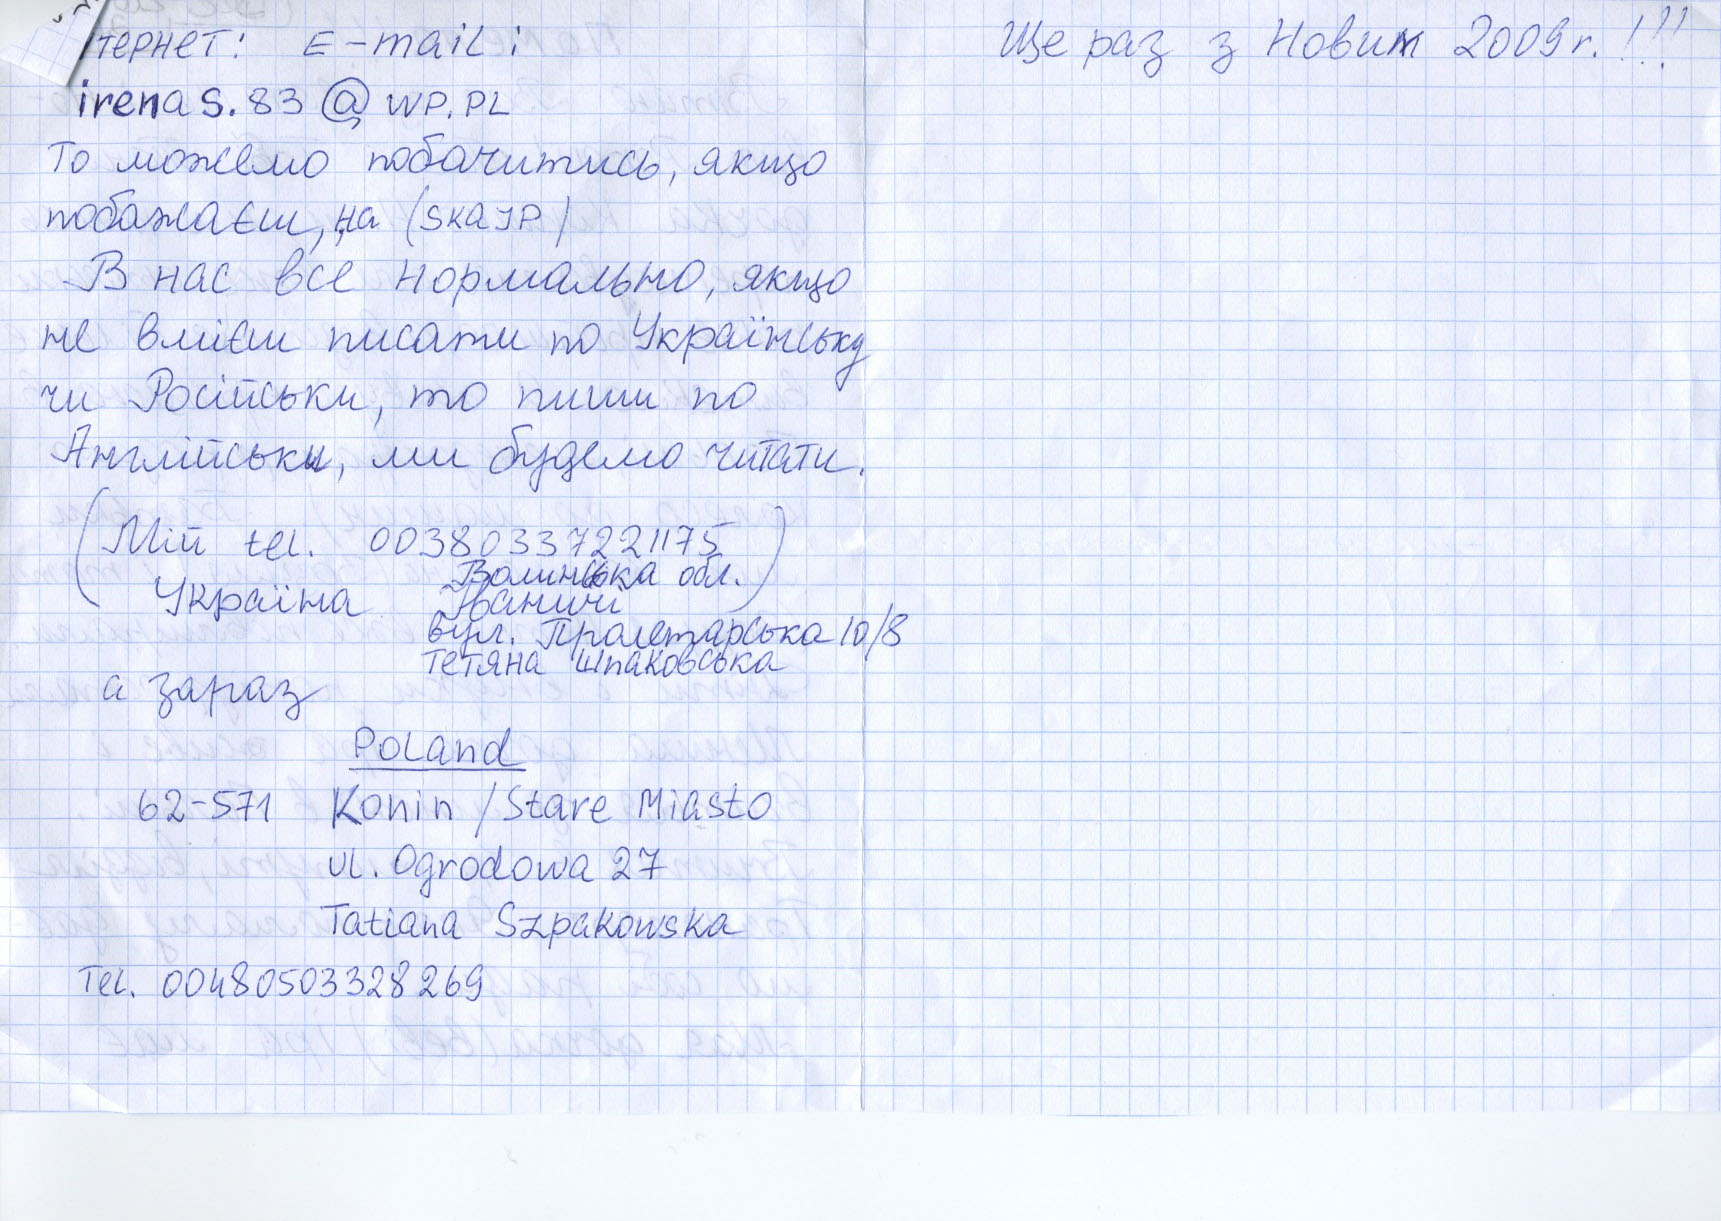 тернет: E-mail і
irenas.83@wp.pl
То можемо побачитись, якщо
побажаєш, на (skajp)
В нас все нормально, якщо
не вмієш писати по Українську
чи Російськи, то пиши по
Англійськи, ми будемо читати.
(Мій tel. 00380337221175)
Україна Волинська обл.
Іваничі
вул. Пролетарська 10/8
Тетяна Шпаковська
а зараз
Poland
62-571 Konin / Stare Miasto
ul. Ogrodowa 27
Tatiana Szpakowska
Tel. 00480503328269
Ще раз з Новим 2009 г. !!!